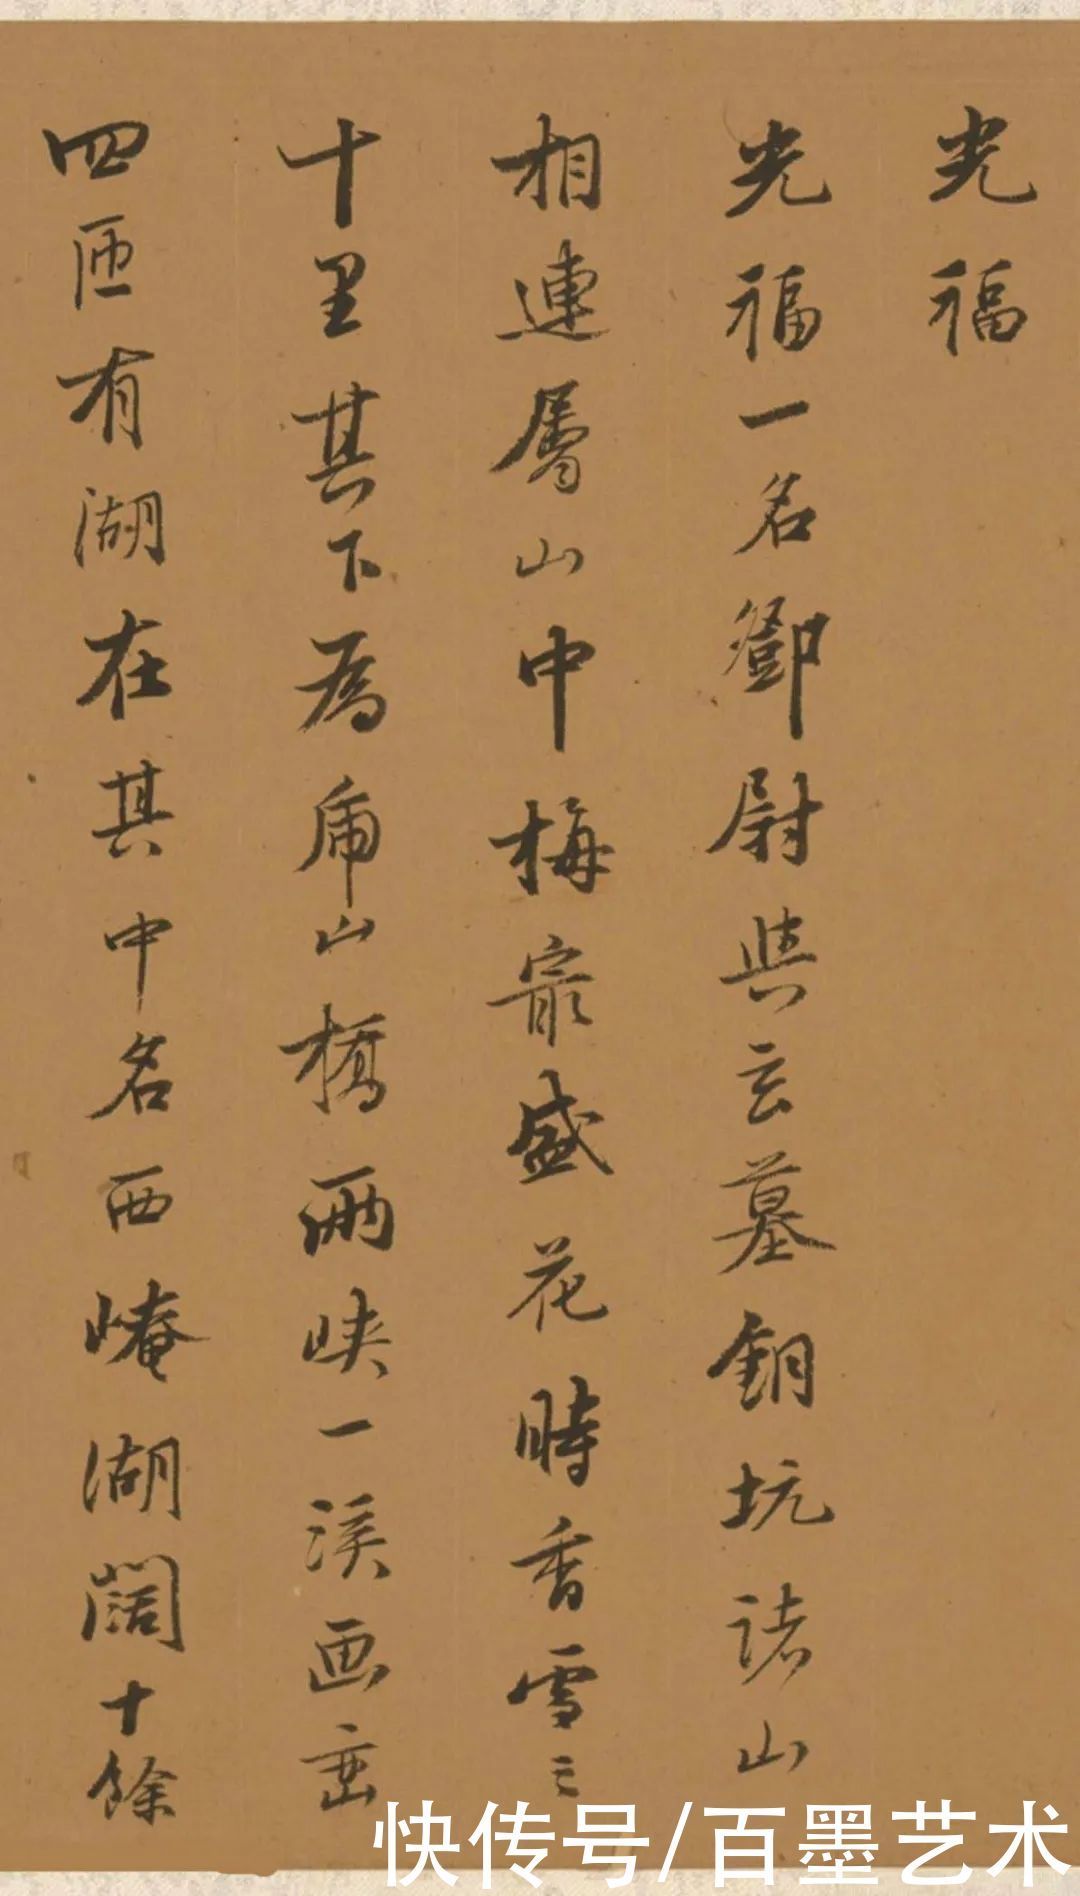 光福
光福一名鄧尉與玄墓銅坑諸山
相連屬山中梅最盛花時香雪三
十里其下為虎山橋兩峽一溪画峦
四匝有湖在其中名西崦湖闊十餘
快传号/百墨艺术